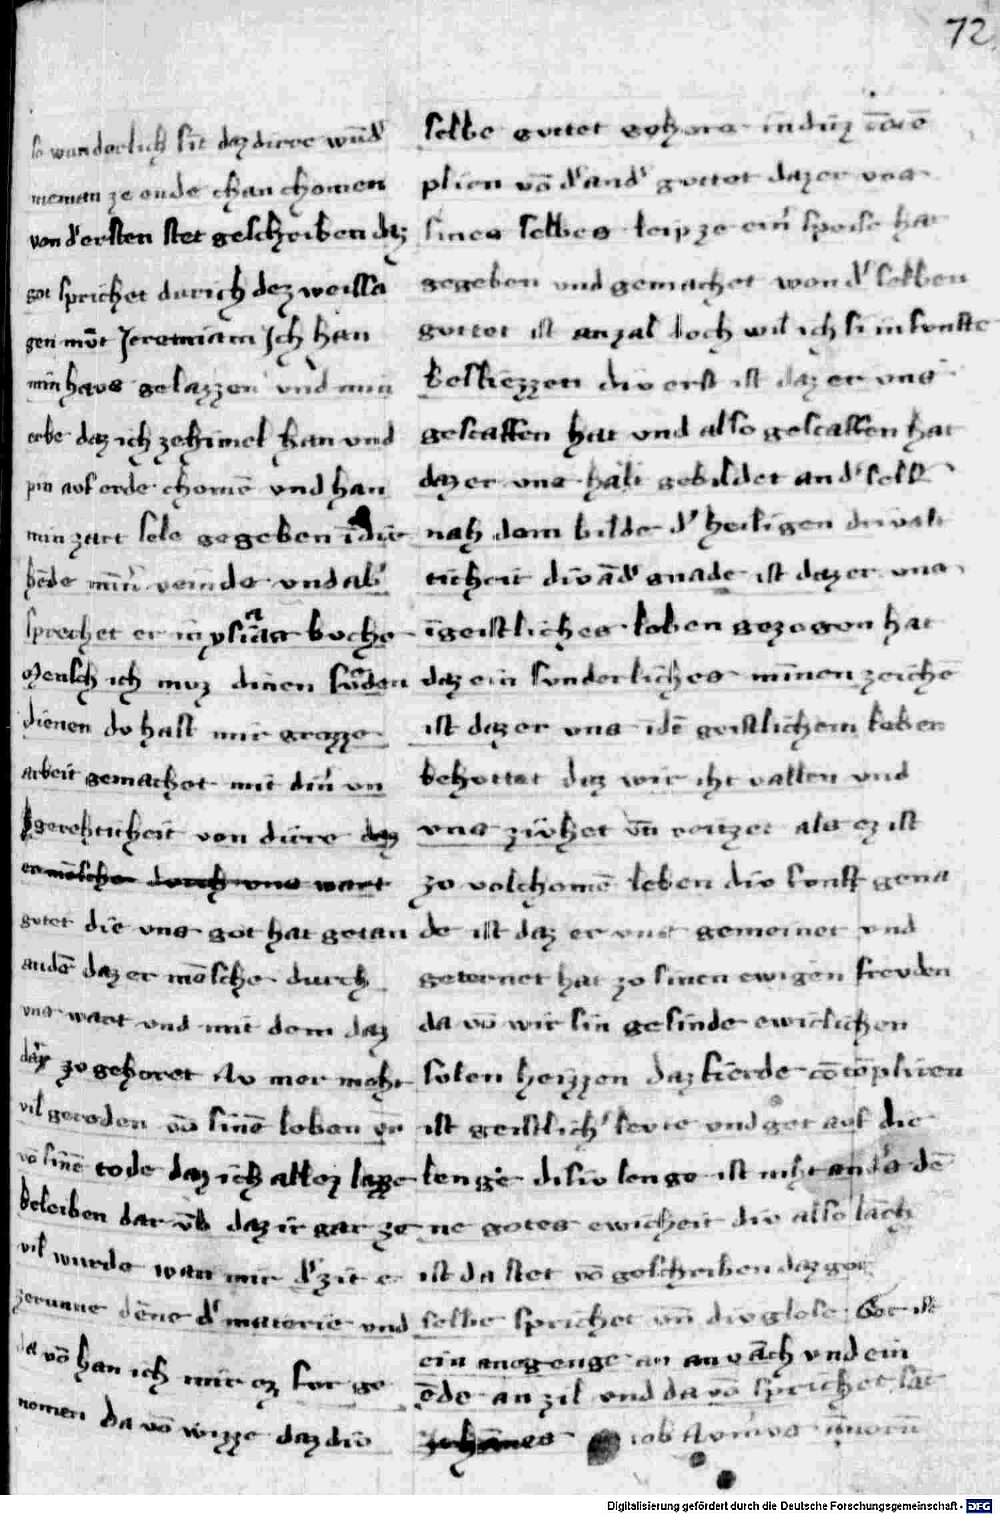 72
so wunderlich sit daz dirre wūd'
nieman ze ende chan chomen
von d' ersten stet geschriben daz
got sprichet durich dez weissa
gen mūt Jeremiam Ich han
min haus gelazzen vnd min
erbe daz ich ze himel han vnd
pin auf erde chomē vnd han
min zart sele gegeben ī die
hēde mīn' veinde vnd ab'
sprechet er in ysaias buche
Mensch ich muz dinen sūden
dienen du hast mir grozze
arbeit gemachet mit din' vn
gerehticheit von dirre daz
er mēsche durch vns wart
gutet die vns got hat getan
andē daz er mēsche durch
vns wart vnd mit dem daz
dar zv gehoret
vil gereden vō sinē leben vn
vō sinē tode daz ich allez lazze
beleiben dar vb daz ir gar ze
vil wurde wan mir d' zit e
zerunne dēne d' materie vnd
da vō han ich mir ez fur ge
nomen da vō wizze daz div
selbe guttet gehore in diz
plien vō d' and' guttet daz er vns
sines selbes leip ze ein' speise hat
gegeben vnd gemachet won d' selben
guttet ist an zal doch wil ich si in funfte
besliezzen div erst ist daz er vns
gescaffen hat vnd also gescaffen hat
daz er vns hat gebildet an d' sell
nah dem bilde d' heiligen drivalt
ticheit div ād' gnade ist daz er vns
ī geistliches leben gezogen hat
daz ein sunderliches minnen zeichē
ist daz er vns idē geistlichem leben
behuttet daz wir iht vallen vnd
vns zivhet vn reitzet als ez ist
zv volchomē leben div funft gena
de ist daz er vns gemeinet vnd
geternet hat zv sinen ewigen frevden
da vō wir sin gesinde ewiclichen
sulen heizzen daz fierde
ist geistlich' levte vnd get auf die
lenge disiv lenge ist niht and's dē
ne gotes ewicheit div also lāch
ist da stet vō geschriben daz got
selbe sprichet vn div glose Got ist
ein anegenge an anvāch vnd ein
ēde an zil vnd da vō sprichet sāt
Johānes iob